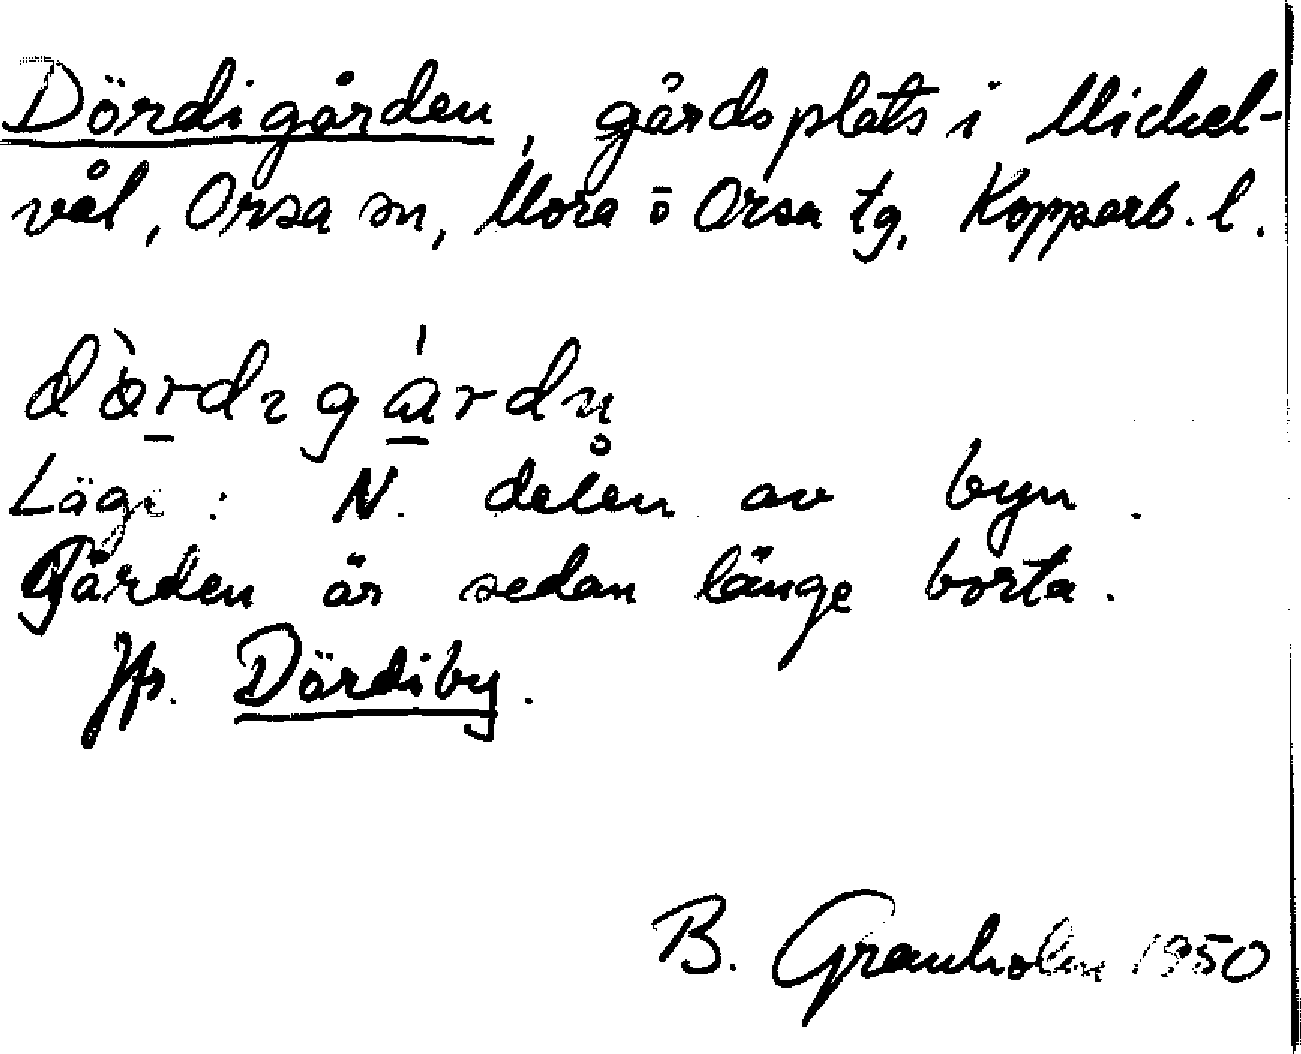 Dördigården, gårdsplats i Mickel-
vål, Orsa sn, Mora o Orsa tg, Kopparb. l.
Läge: N. delen av byn.
Gården är sedan länge borta.
Jfr. Dördiby.
B. Granholm 1950